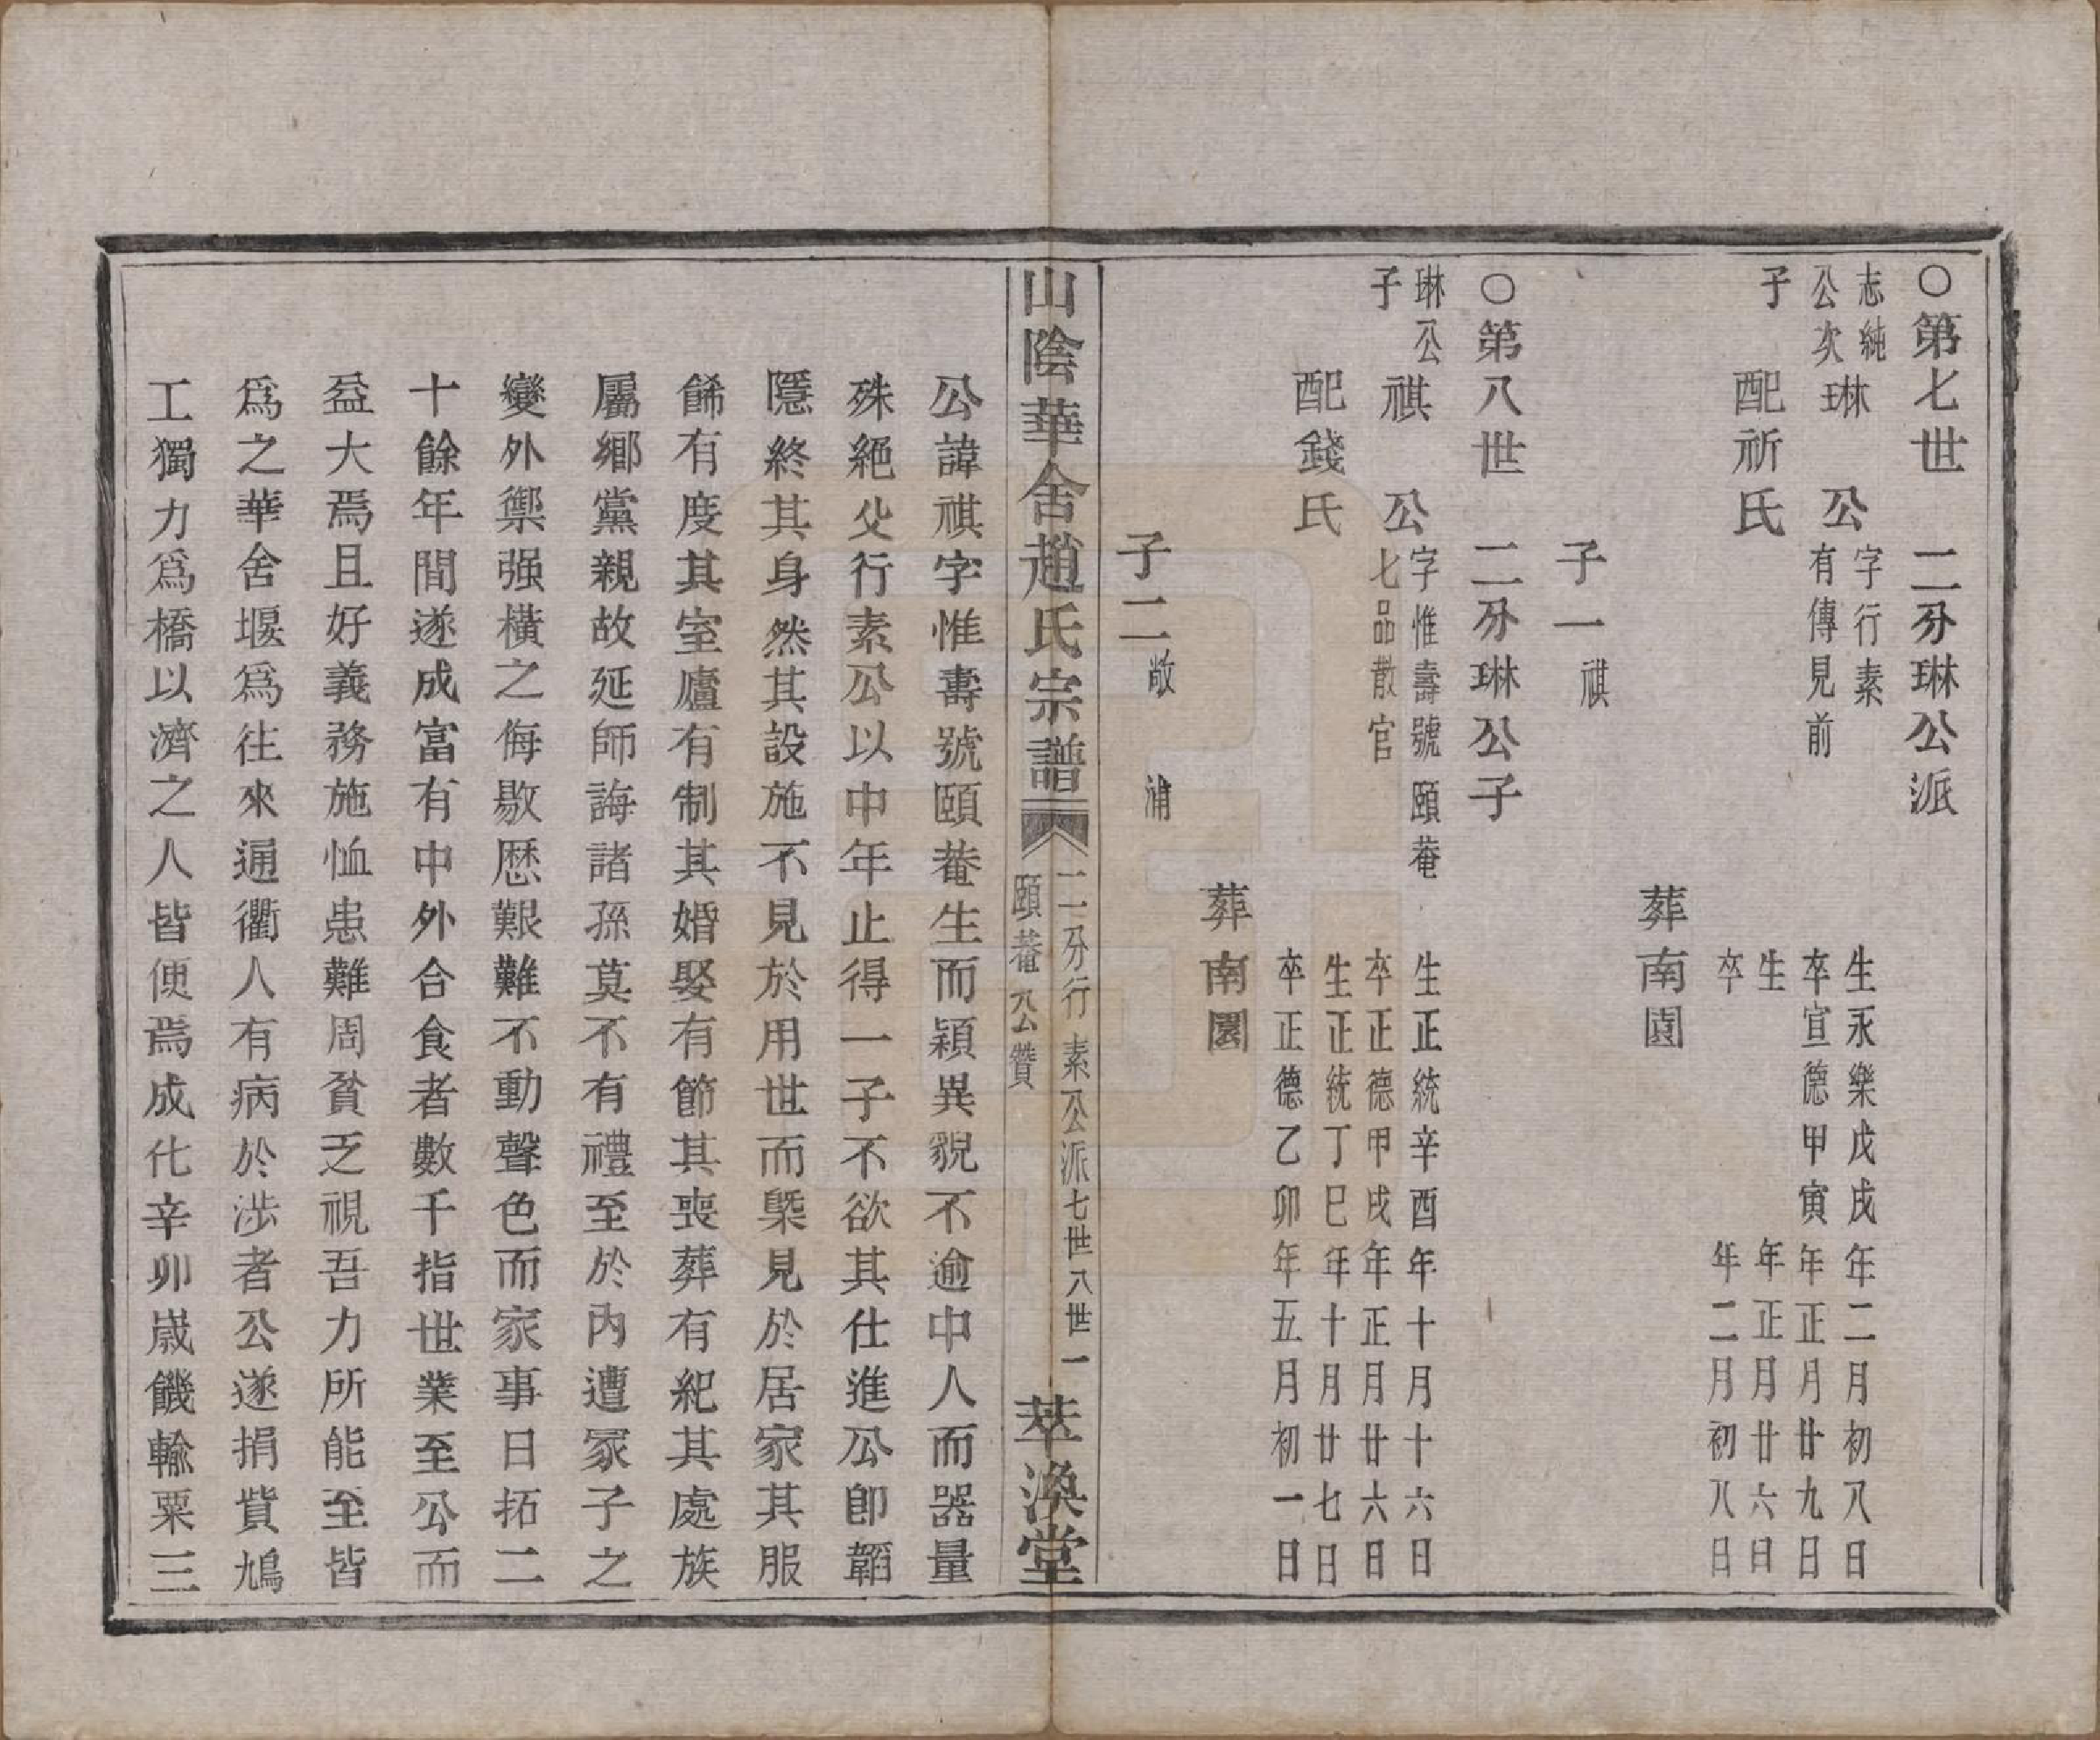 ○第七世　二分琳公派
志純公次子　琳　公　字行素　有傳見前　生永樂戊戌年二月初八日　卒宣德甲寅年正月廿九日
配祈氏　生　年正月廿六日　卒　年二月初八日
葬南園
子一　祺
○第八世　二分琳公子
琳公子　祺　公　字惟壽號頤菴　七品散官　生正統辛酉年十月十六日　卒正德甲戌年正月廿六日
配錢氏　生正統丁巳年十月廿七日　卒正德乙卯年五月初一日
葬南園
子二　敞　浦
山陰華舍趙氏宗譜　二分行素公派七世八世一　頤菴公贊　萃渙堂
公諱祺字惟壽號頤菴生而穎異貌不逾中人而器量
殊絕父行素公以中年止得一子不欲其仕進公卽韜
隱終其身然其設施不見於用世而槩見於居家其服
餙有度其室廬有制其婚娶有節其喪葬有紀其處族
屬鄉黨親故延師誨諸孫莫不有禮至於內遭冢子之
變外禦强橫之侮敭歷艱難不動聲色而家事日拓二
十餘年間遂成富有中外合食者數千指世業至公而
益大焉且好義務施恤患難周貧乏視吾力所能至皆
爲之華舍堰爲往來通衢人有病於涉者公遂捐貲鳩
工獨力爲橋以濟之人皆便焉成化辛卯嵗饑輸粟三